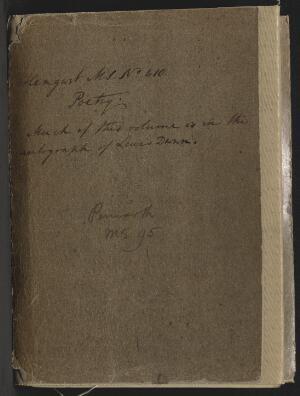 Hengwrt MS. No 410.
Poetry.
Much of this volume is in the
autograph of Lewis Dwnn.
Peniarth
MS 95